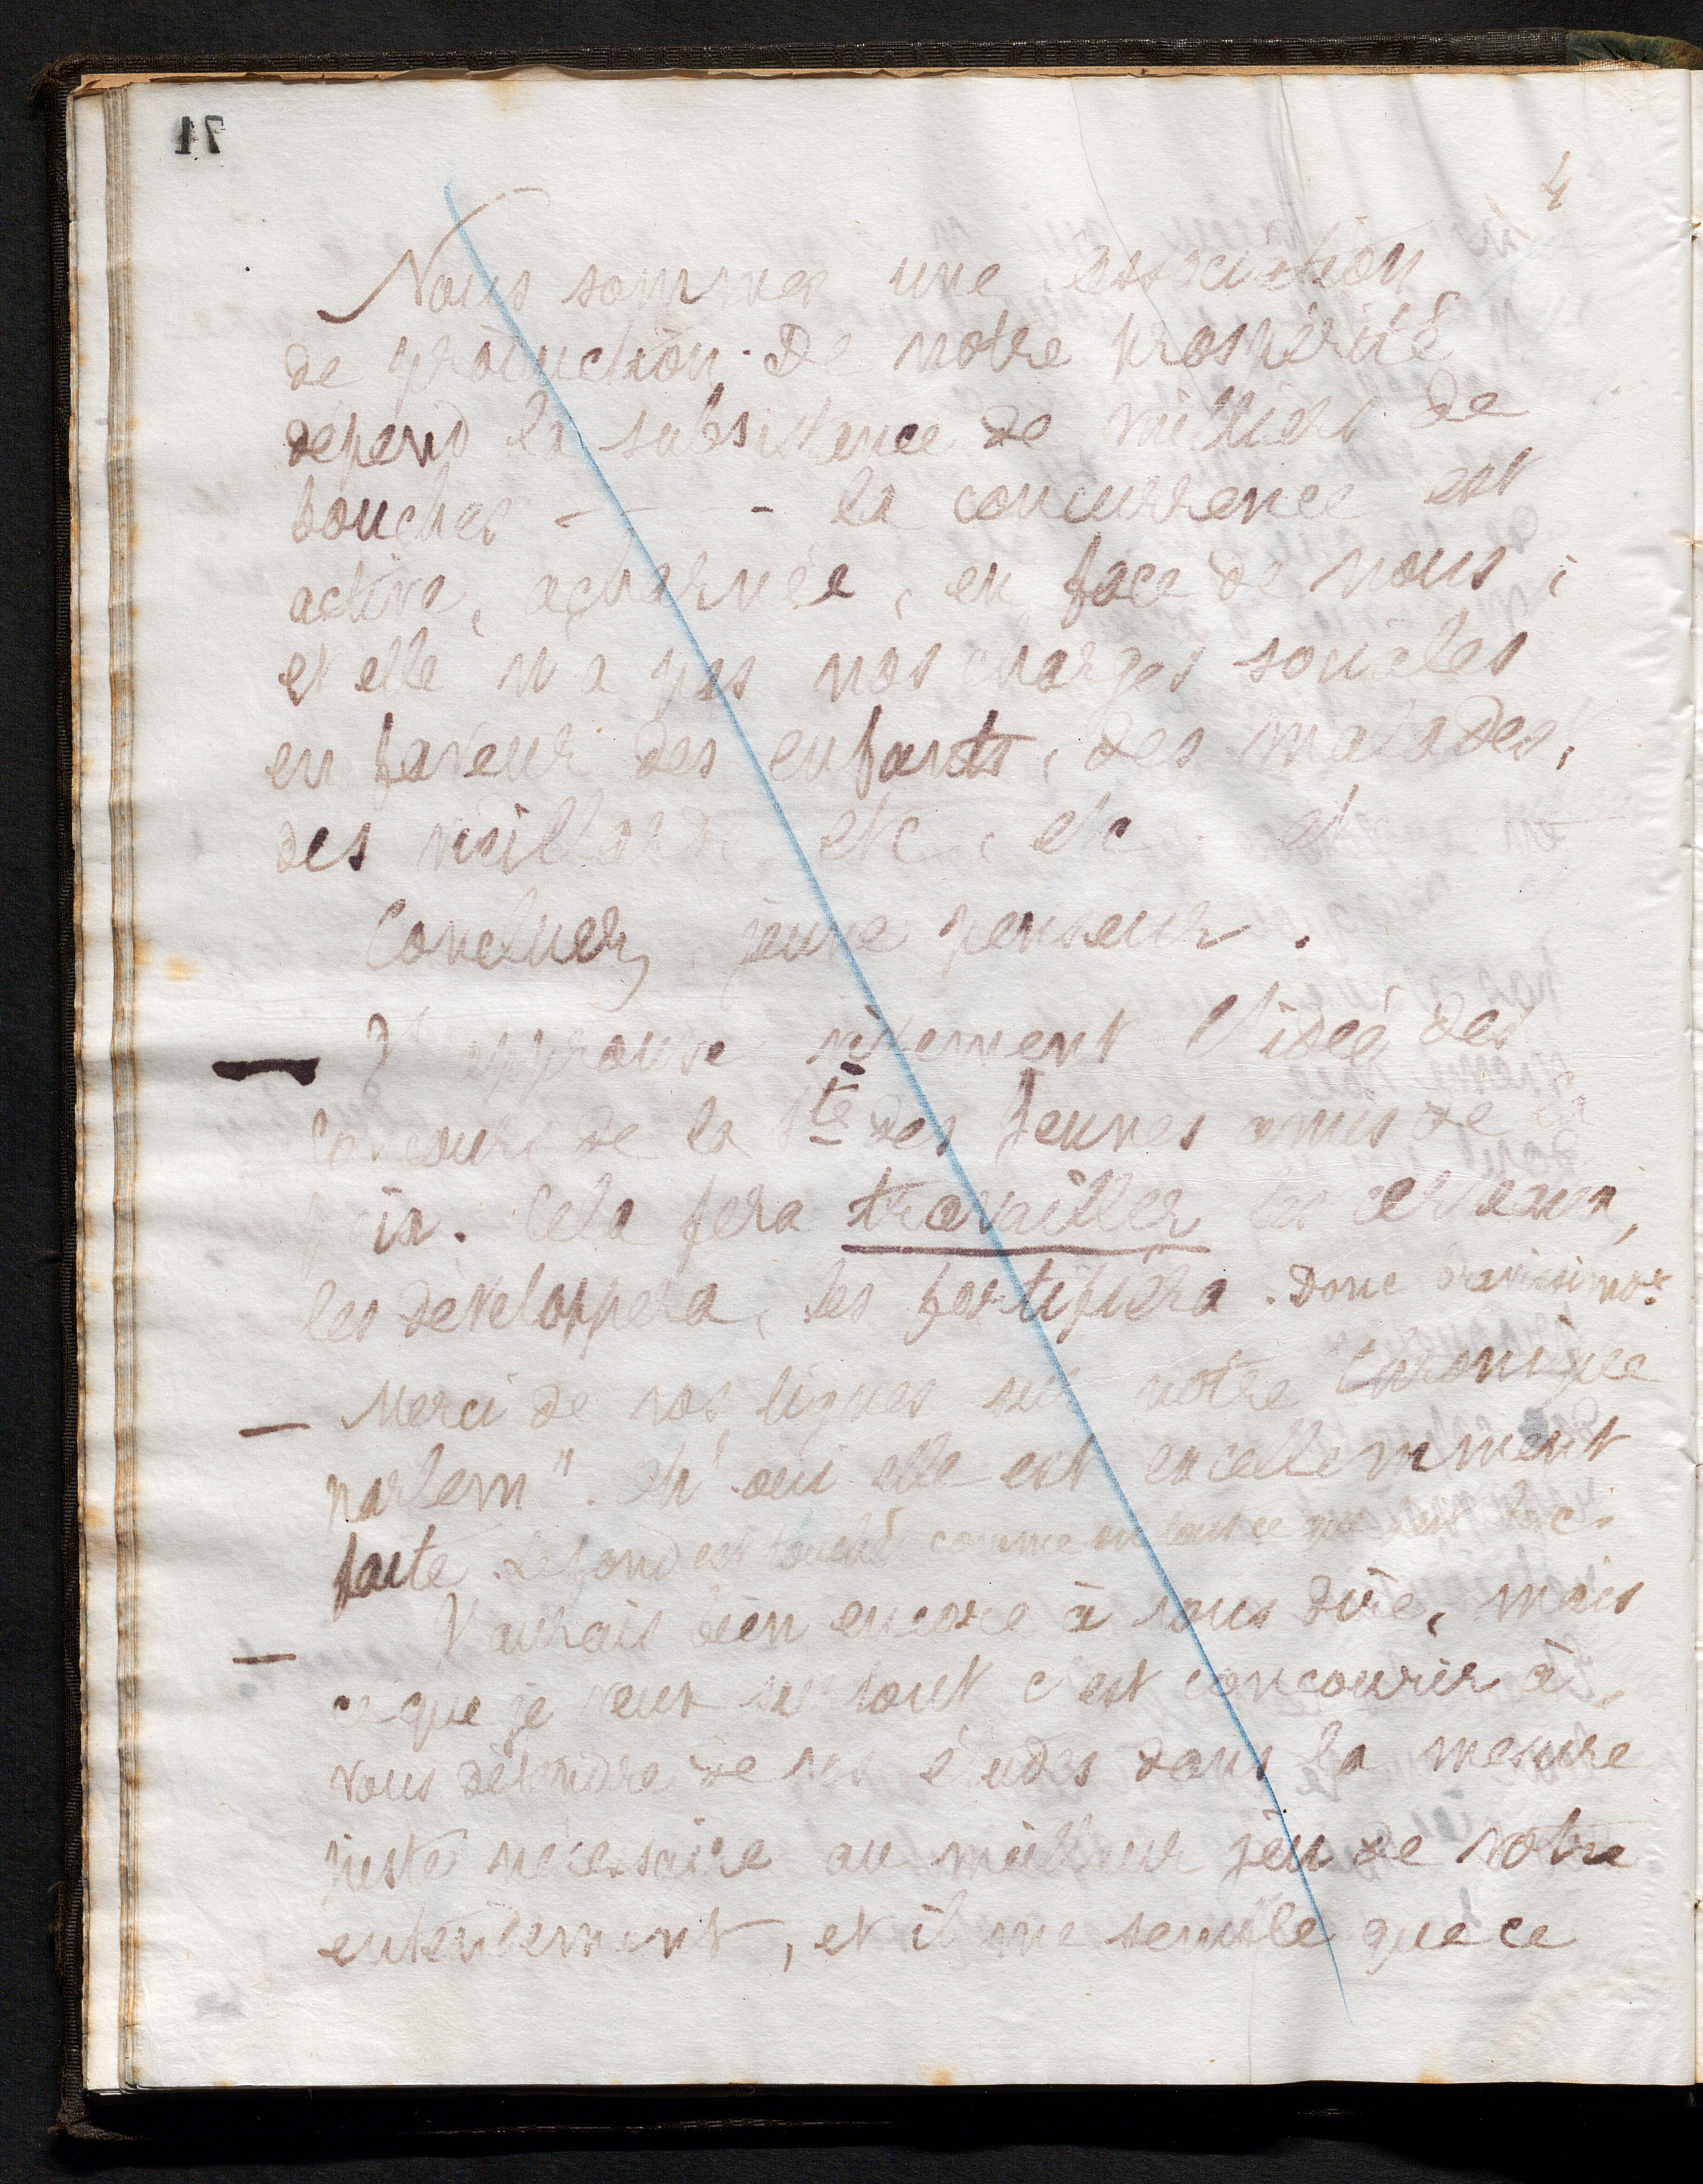 71
4
Nous sommes une association
de production. De notre prospérité
dépend la subsistance de milliers de
bouches - - - la concurrence est
active, acharnée, en face de nous ;
et elle n'a pas nos charges sociales
en faveur des enfants, des malades,
des vieillards etc, etc. et
Concluez, jeune penseur.
— J'approuve vivement l'idée des
Concours de la Sté des Jeunes amis de la
paix. Cela fera travailler les cerveaux,
les développera, les fortifiera. Donc bravissimo.
— Merci de vos lignes sur notre "Chronique
parlem". Eh! oui elle est excellemment
faite. Le fond est touché comme en tout ce que
— J'aurais bien encore à vous dire, mais
ce que je veux surtout c'est concourir à
vous détendre de vos études dans la mesure
juste nécessaire au meilleur jeu de votre
entendement, et il me semble que ce